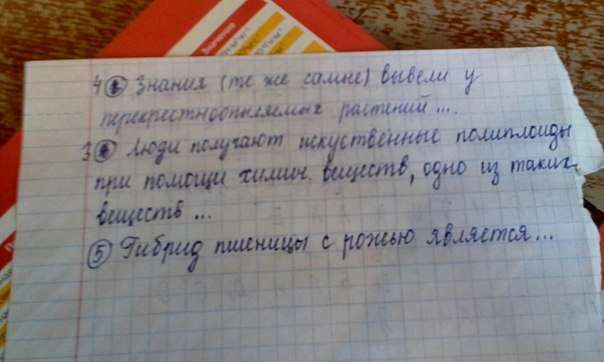 4. Знания (те же самые) вывели у
перекрестноопыляемых растений ...
3. Люди получают искуственные полиплоиды
при помощи химич. веществ, одно из таких
веществ ...
5 Гибрид пшеницы с рожью является...